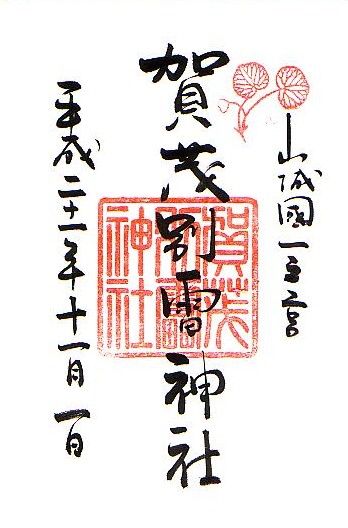 山城國一之宮
賀茂別雷神社
賀茂別雷神社
平成二十一年十一月一日